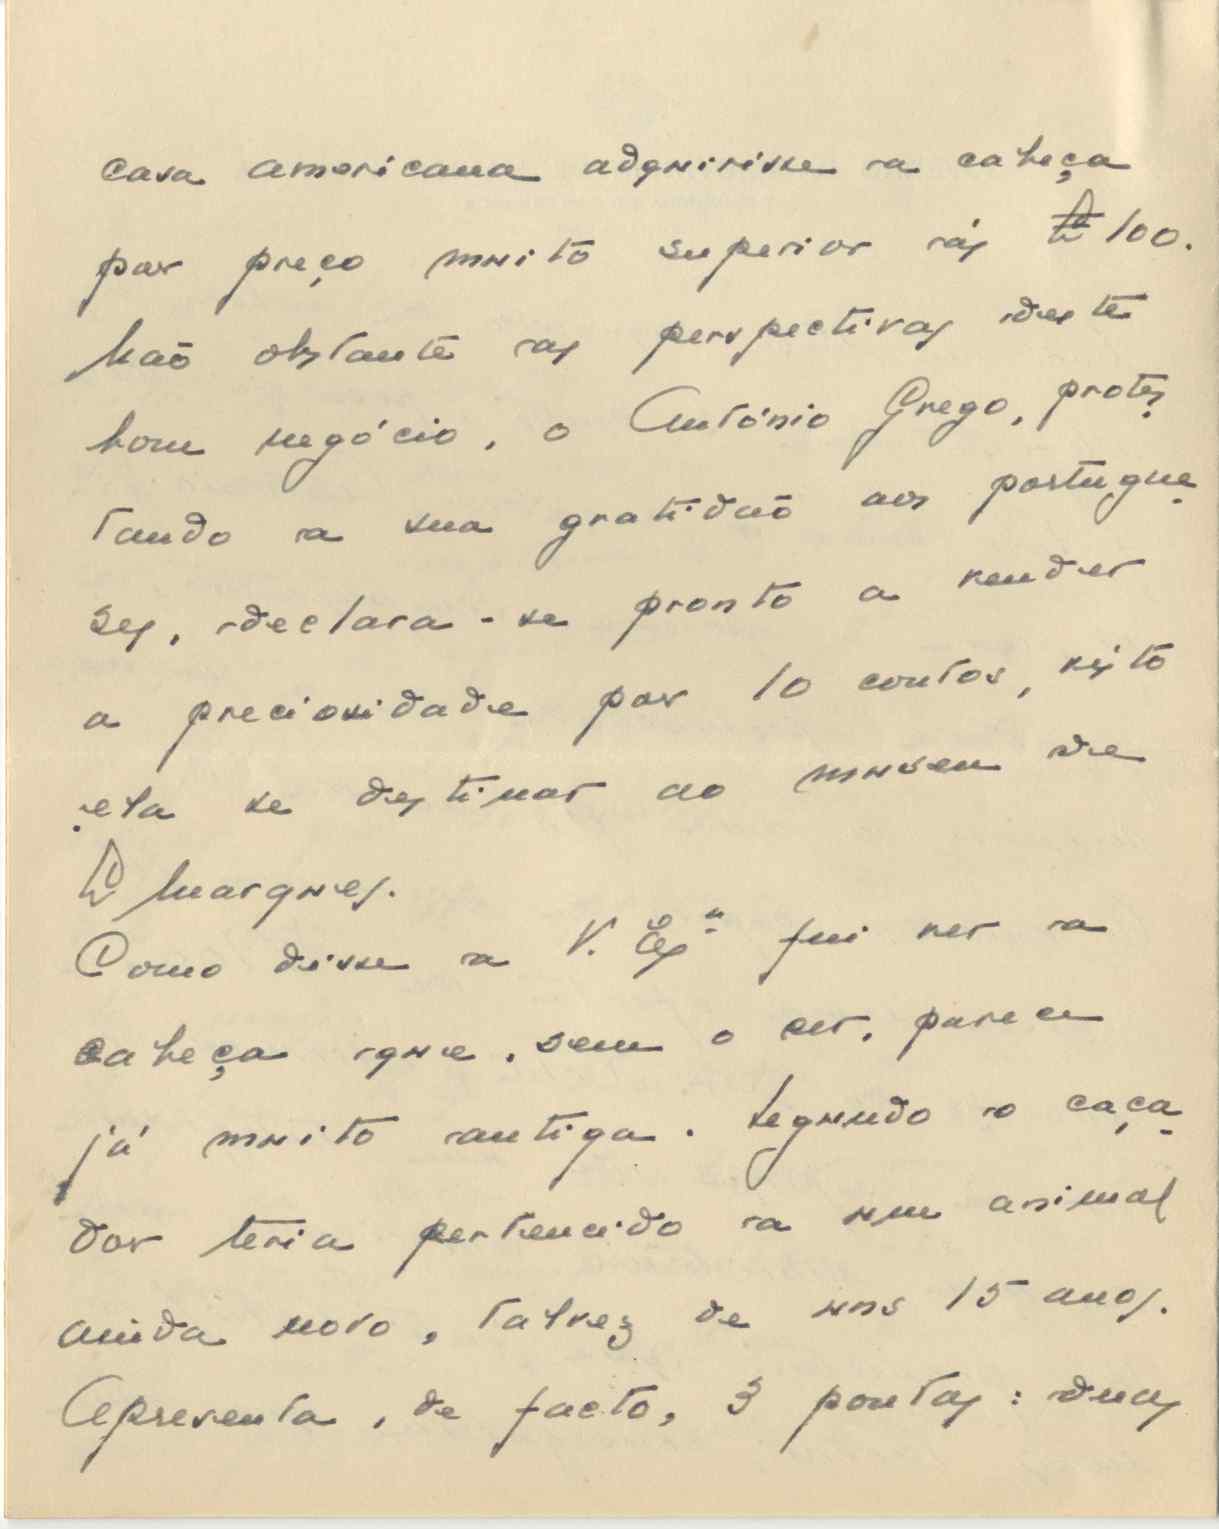 casa americana adquirisse a cabeça
por preço muito superior ás £ 100.
Não obstante as perspectivas deste
bom negócio, o António Grego, protes
tando a sua gratidão aos portugue
ses, declara-se pronto a vender
a preciosidade por 10 contos, visto
ela se destinar ao museu de
L. Marques.
Como disse a V. Exª fui ver a
cabeça que, sem o ser, parece
já muito antiga. Segundo o caça
dor teria pertencido a um animal
ainda novo, talvez de uns 15 anos.
Apresenta, de facto, 3 pontas: duas